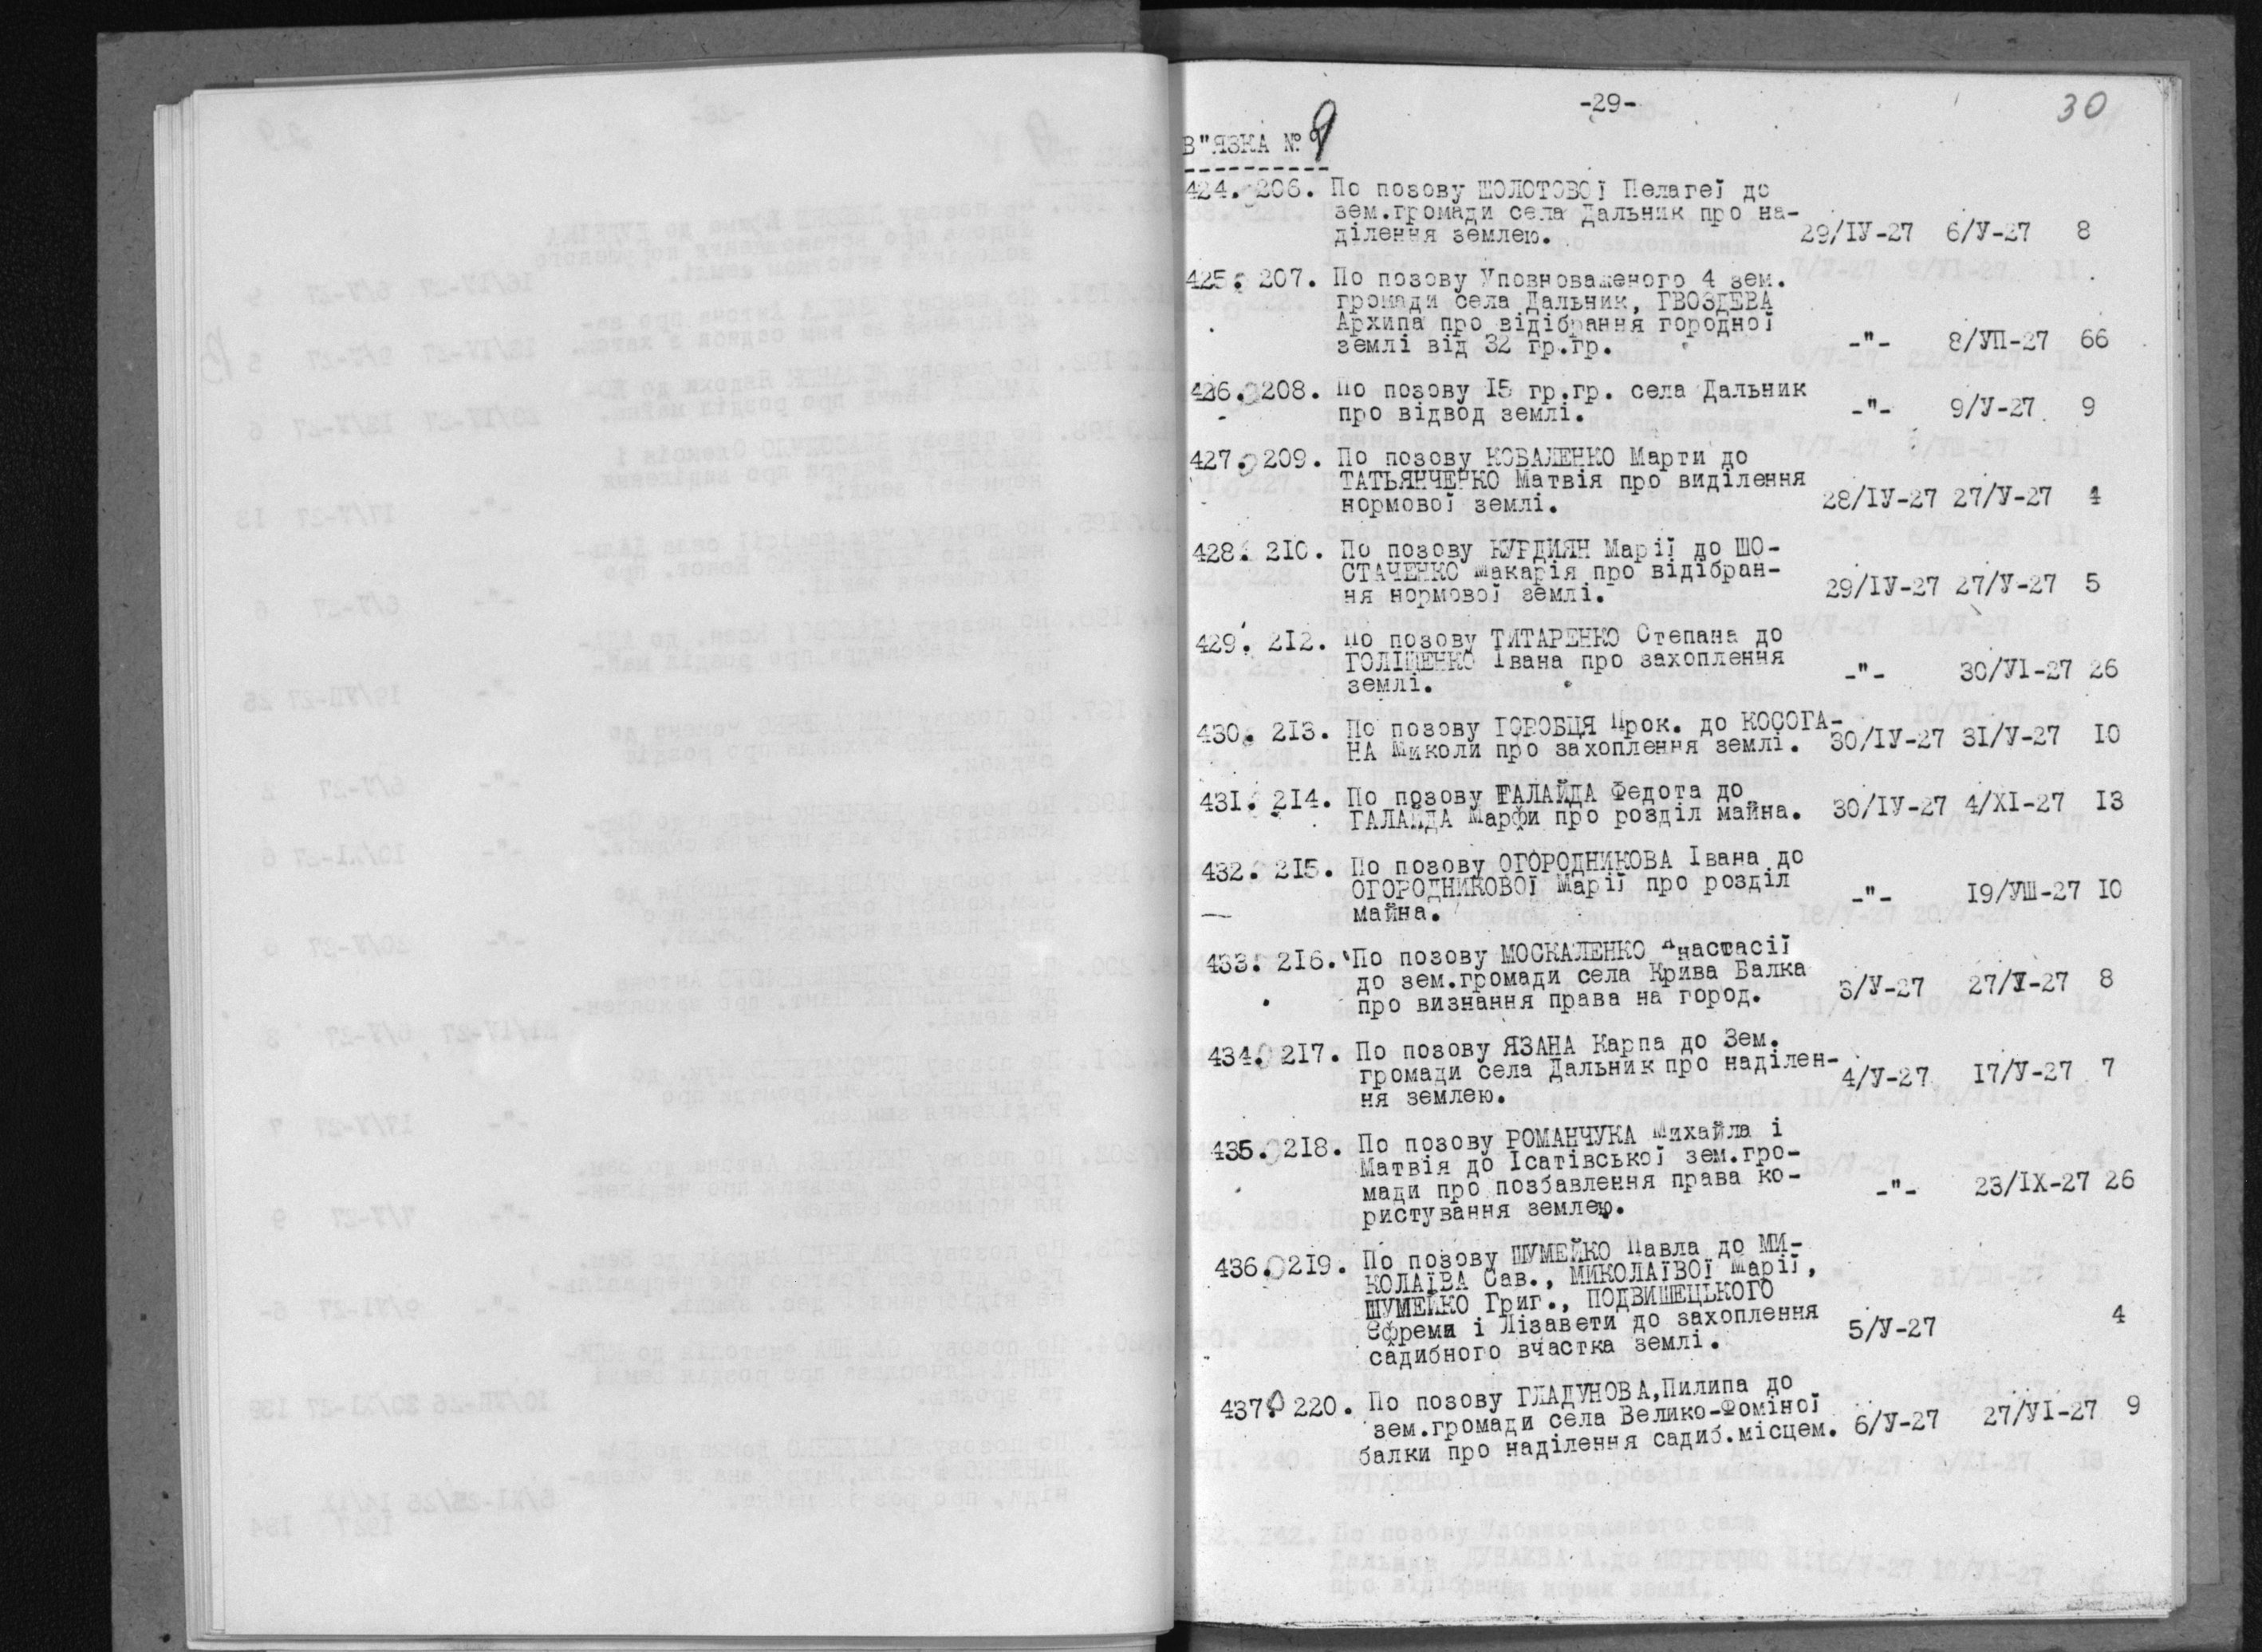 -29-
30
В"ЯЗКА № 9
424. 206. По позову ШОЛОТОВОЇ Пелагеї до
зем.громади села Дальник про на-
ділення землею. 29/ІУ-27 6/У-27 8
425. 207. По позову Уповноваженого 4 зем.
громади села Дальник, ГВОЗДЕВА
Архипа про відібрання городної
землі від 32 гр.гр. -"- 8/УП-27 66
426. 208. По позову І5 гр.гр. села Дальник
про відвод землі. -"- 9/У-27 9
427. 209. По позову КОВАЛЕНКО Марти до
ТАТЬЯНЧЕНКО Матвія про виділення
нормової землі. 28/ІУ-27 27/У-27 4
428. 210. По позову КУРДИЯН Марії до ШО-
СТАЧЕНКО Макарія про відібран-
ня нормової землі. 29/ІУ-27 27/У-27 5
429. 212. По позову ТИТАРЕНКО Степана до
ГОЛІЩЕНКО Івана про захоплення
землі. -"- 30/УІ-27 26
430. 213. По позову ГОРОБЦЯ Прок. до КОСОГА-
НА Миколи про захоплення землі. 30/ІУ-27 3І/У-27 І0
431. 214. По позову ГАЛАЙДА Федота до
ГАЛАЙДА Марфи про розділ майна. 30/ІУ-27 4/ХІ-27 І3
432. 2І5. По позову ОГОРОДНИКОВА Івана до
ОГОРОДНИКОВОЇ Марії про розділ
майна. -"- І9/УШ-27 І0
433. 2І6. По позову МОСКАЛЕНКО Анастасії
до зем.громади села Крива Балка
про визнання права на город. 3/У-27 27/У-27 8
434. 2І7. По позову ЯЗАНА Карпа до Зем.
громади села Дальник про наділен-
ня землею. 4/У-27 І7/У-27 7
435. 2І8. По позову РОМАНЧУКА Михайла і
Матвія до Ісатівської зем.гро-
мади про позбавлення права ко-
ристування землею. -"- 23/ІХ-27 26
436. 2І9. По позову ШУМЕЙКО Павла до МИ-
КОЛАЇВА Сав., МИКОЛАЇВОЇ Марії,
ШУМЕЙКО Григ., ПОДВИШЕЦЬКОГО
Єфрема і Лізавети до захоплення
садибного вчастка землі. 5/У-27 4
437. 220. По позову ГЛАДУНОВА,Пилипа до
зем.громади села Велико-Фоміної
балки про наділення садиб.місцем. 6/У-27 27/УІ-27 9